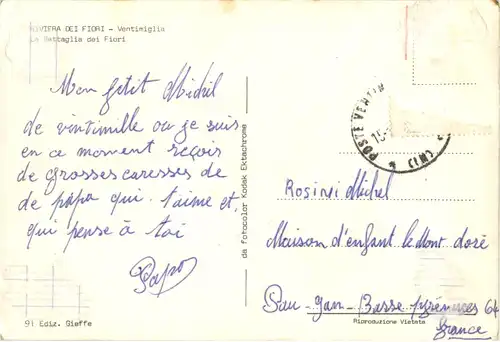 RIVIERA DEI FIORI - Ventimiglia
La Battaglia dei Fiori
Mon petit Michel
de vintimille ou je suis
en ce moment reçois
de grosses caresses de
de papa qui t'aime et
qui pense à toi
Papo
91 Ediz. Gieffe
da fotocolor Kodak Ektachrome
POSTE VENTIM
15-
(IM)
Rosini Michel
Maison d'enfant le Mont doré
Pau-Jan-Basse pyrénnées 64
france
Riproduzione Vietata